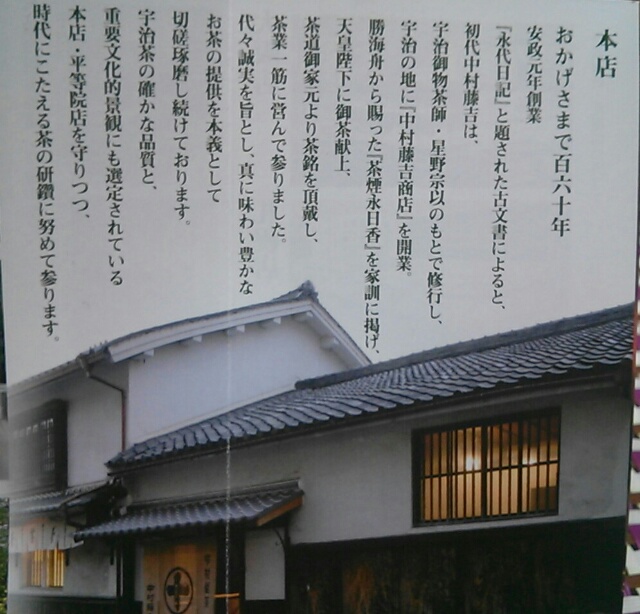 本店
おかげさまで百六十年
安政元年創業
『永代日記』と題された古文書によると、
初代中村藤吉は、
宇治御物茶師・星野宗以のもとで修行し、
宇治の地に『中村藤吉商店』を開業。
勝海舟から賜った『茶煙永日香』を家訓に掲げ、
天皇陛下に御茶献上、
茶道御家元より茶銘を頂戴し、
茶業一筋に営んで参りました。
代々誠実を旨とし、真に味わい豊かな
お茶の提供を本義として
切磋琢磨し続けております。
宇治茶の確かな品質と、
重要文化的景観にも選定されている
本店・平等院店を守りつつ、
時代にこたえる茶の研鑽に努めて参ります。